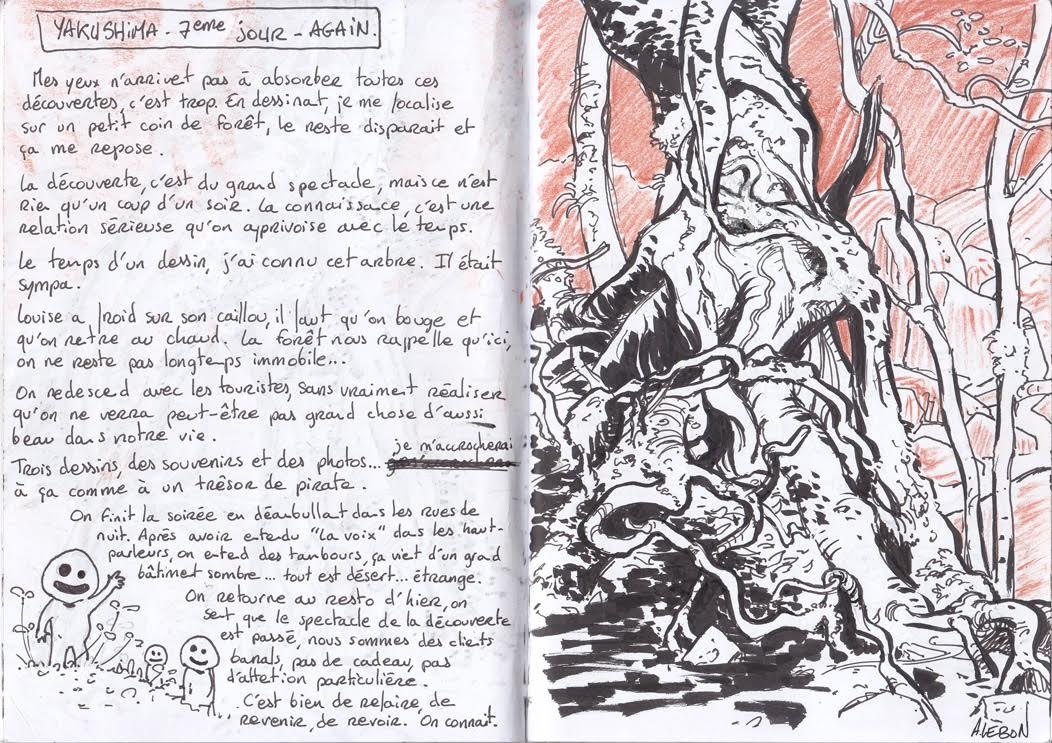 YAKUSHIMA - 7eme jour - AGAIN.
Mes yeux n'arrivet pas à absorber toutes ces
découvertes, c'est trop. En dessinat, je me focalise
sur un petit coin de forêt, le reste disparait et
ça me repose.
La découverte, c'est du grand spectacle, mais ce n'est
rien qu'un coup d'un soir. La connaissace, c'est une
relation sérieuse qu'on apprivoise avec le temps.
Le temps d'un dessin, j'ai connu cet arbre. Il était
sympa.
Louise a froid sur son caillou, il faut qu'on bouge et
qu'on retre au chaud. La forêt nous rappelle qu'ici,
on ne reste pas longtemps immobile...
On redesced avec les touristes, sans vraiment réaliser
qu'on ne verra peut-être pas grand chose d'aussi
beau dans notre vie.
Trois dessins, des souvenirs et des photos... je m'accrocherai
à ça comme à un trésor de pirate.
On finit la soirée en déanbullat dans les rues de
nuit. Après avoir entedu "La voix" dans les haut-
parleurs, on ented des tambours, ça viet d'un grad
bâtimet sombre... tout est désert... étrange.
On retourne au resto d'hier, on
set que le spectacle de la découverte
est passé, nous sommes des cliets
banals, pas de cadeau, pas
d'attetion particulière.
C'est bien de refaire, de
revenir, de revoir. On connait.
A.LEBON